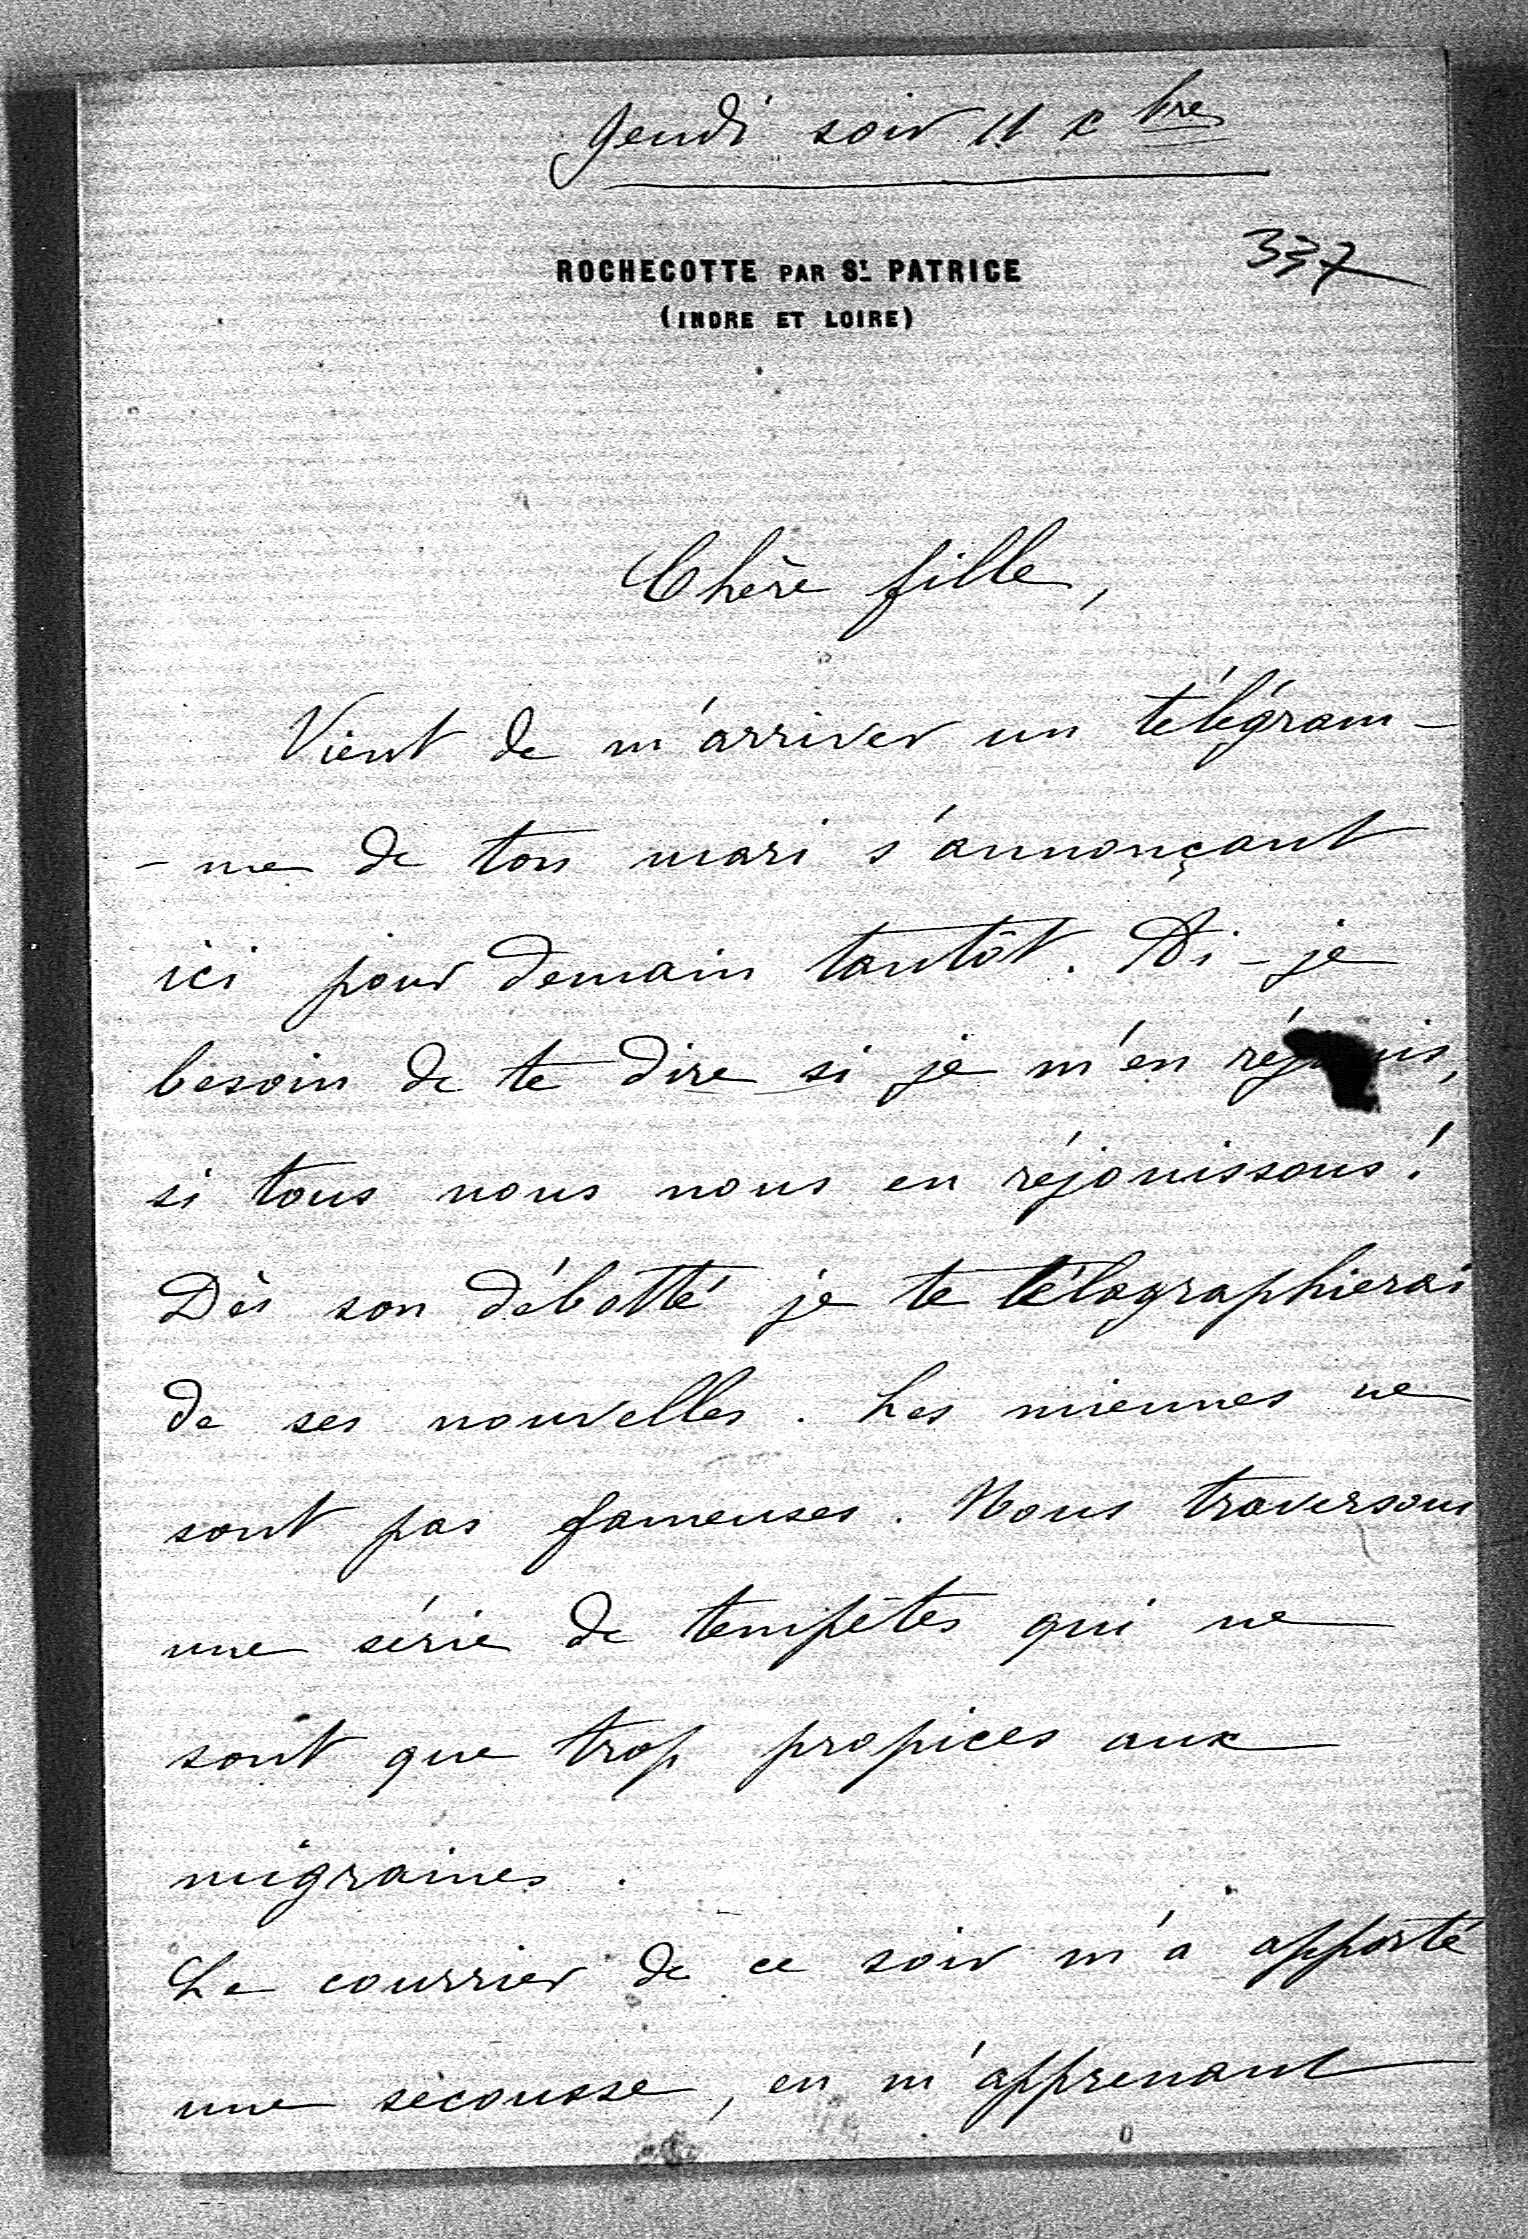 Jeudi soir 11 Xbre
337
ROCHECOTTE PAR ST. PATRICE
(INDRE ET LOIRE)
Chère fille,
Vient de m'arriver un télégram-
-me de ton mari s'annonçant
ici pour demain tantôt. Ai-je
besoin de te dire si je m'en réjouis,
si tous nous nous en réjouissons!
Dès son débotté je te télagraphierai
de ses nouvelles. Les miennes ne
sont pas fameuses. Nous traversons
une série de tempêtes qui ne
sont que trop propices aux
migraines.
Le courrier de ce soir m'a apporté
une secousse, en m'apprenant